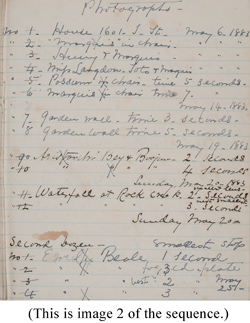 Photographs
No 1 - House 1601. I. St. May 6. 1883
" 2 - Marquis in chair.
" 3 - Henry & Marquis
" 4 - Mrs Langdon,
" 5 - Possum in chair - time 5 seconds.
" 6 Marquis in chair time 7.
May 14. 1883
" 7. Garden wall - time 3 seconds.
" 8 Garden wall time 5 seconds.
May 19. 1883
" 9 2 seconds
" 10 " " " 4 seconds
Sunday May 20 1883
" 11 - Waterfall at Rock Creek. 2 seconds
" 12 " " " 3. seconds
Sunday May 20
Second Dozen - smallest stop
No 1 - Beale, 1 second
" 2 " " plate
" 3 " " 2 " May
" 4 " " 3
(This is image 2 of the sequence.)